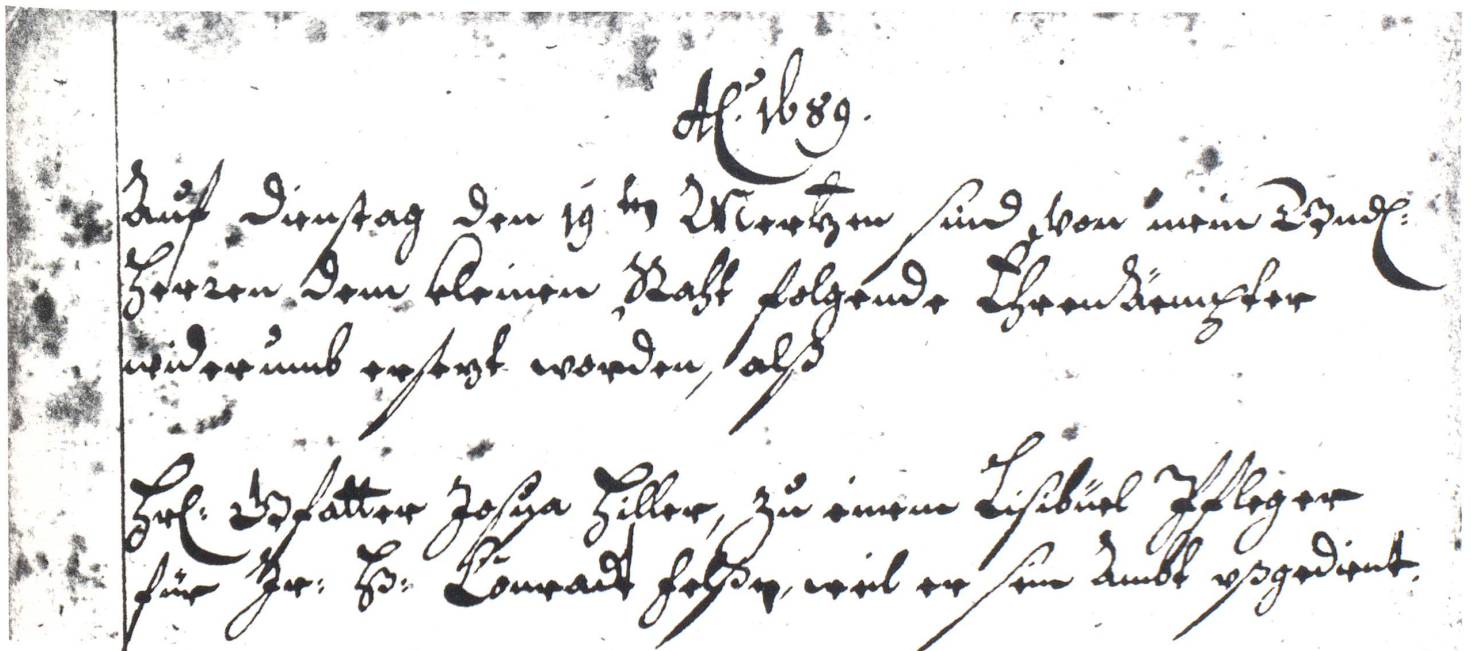 Aō. 1689.
Auf Dienstag den 19ten Mertzen sind von mein Gnd:
Herren dem kleinen Raht folgende Ehrenäempter
widerumb ersezt worden, alß
Hr: Gfatter Josua Hiller, zu einem Pfleger
für Jr: Hß: Conradt weil er sein Ambt ußgedient.